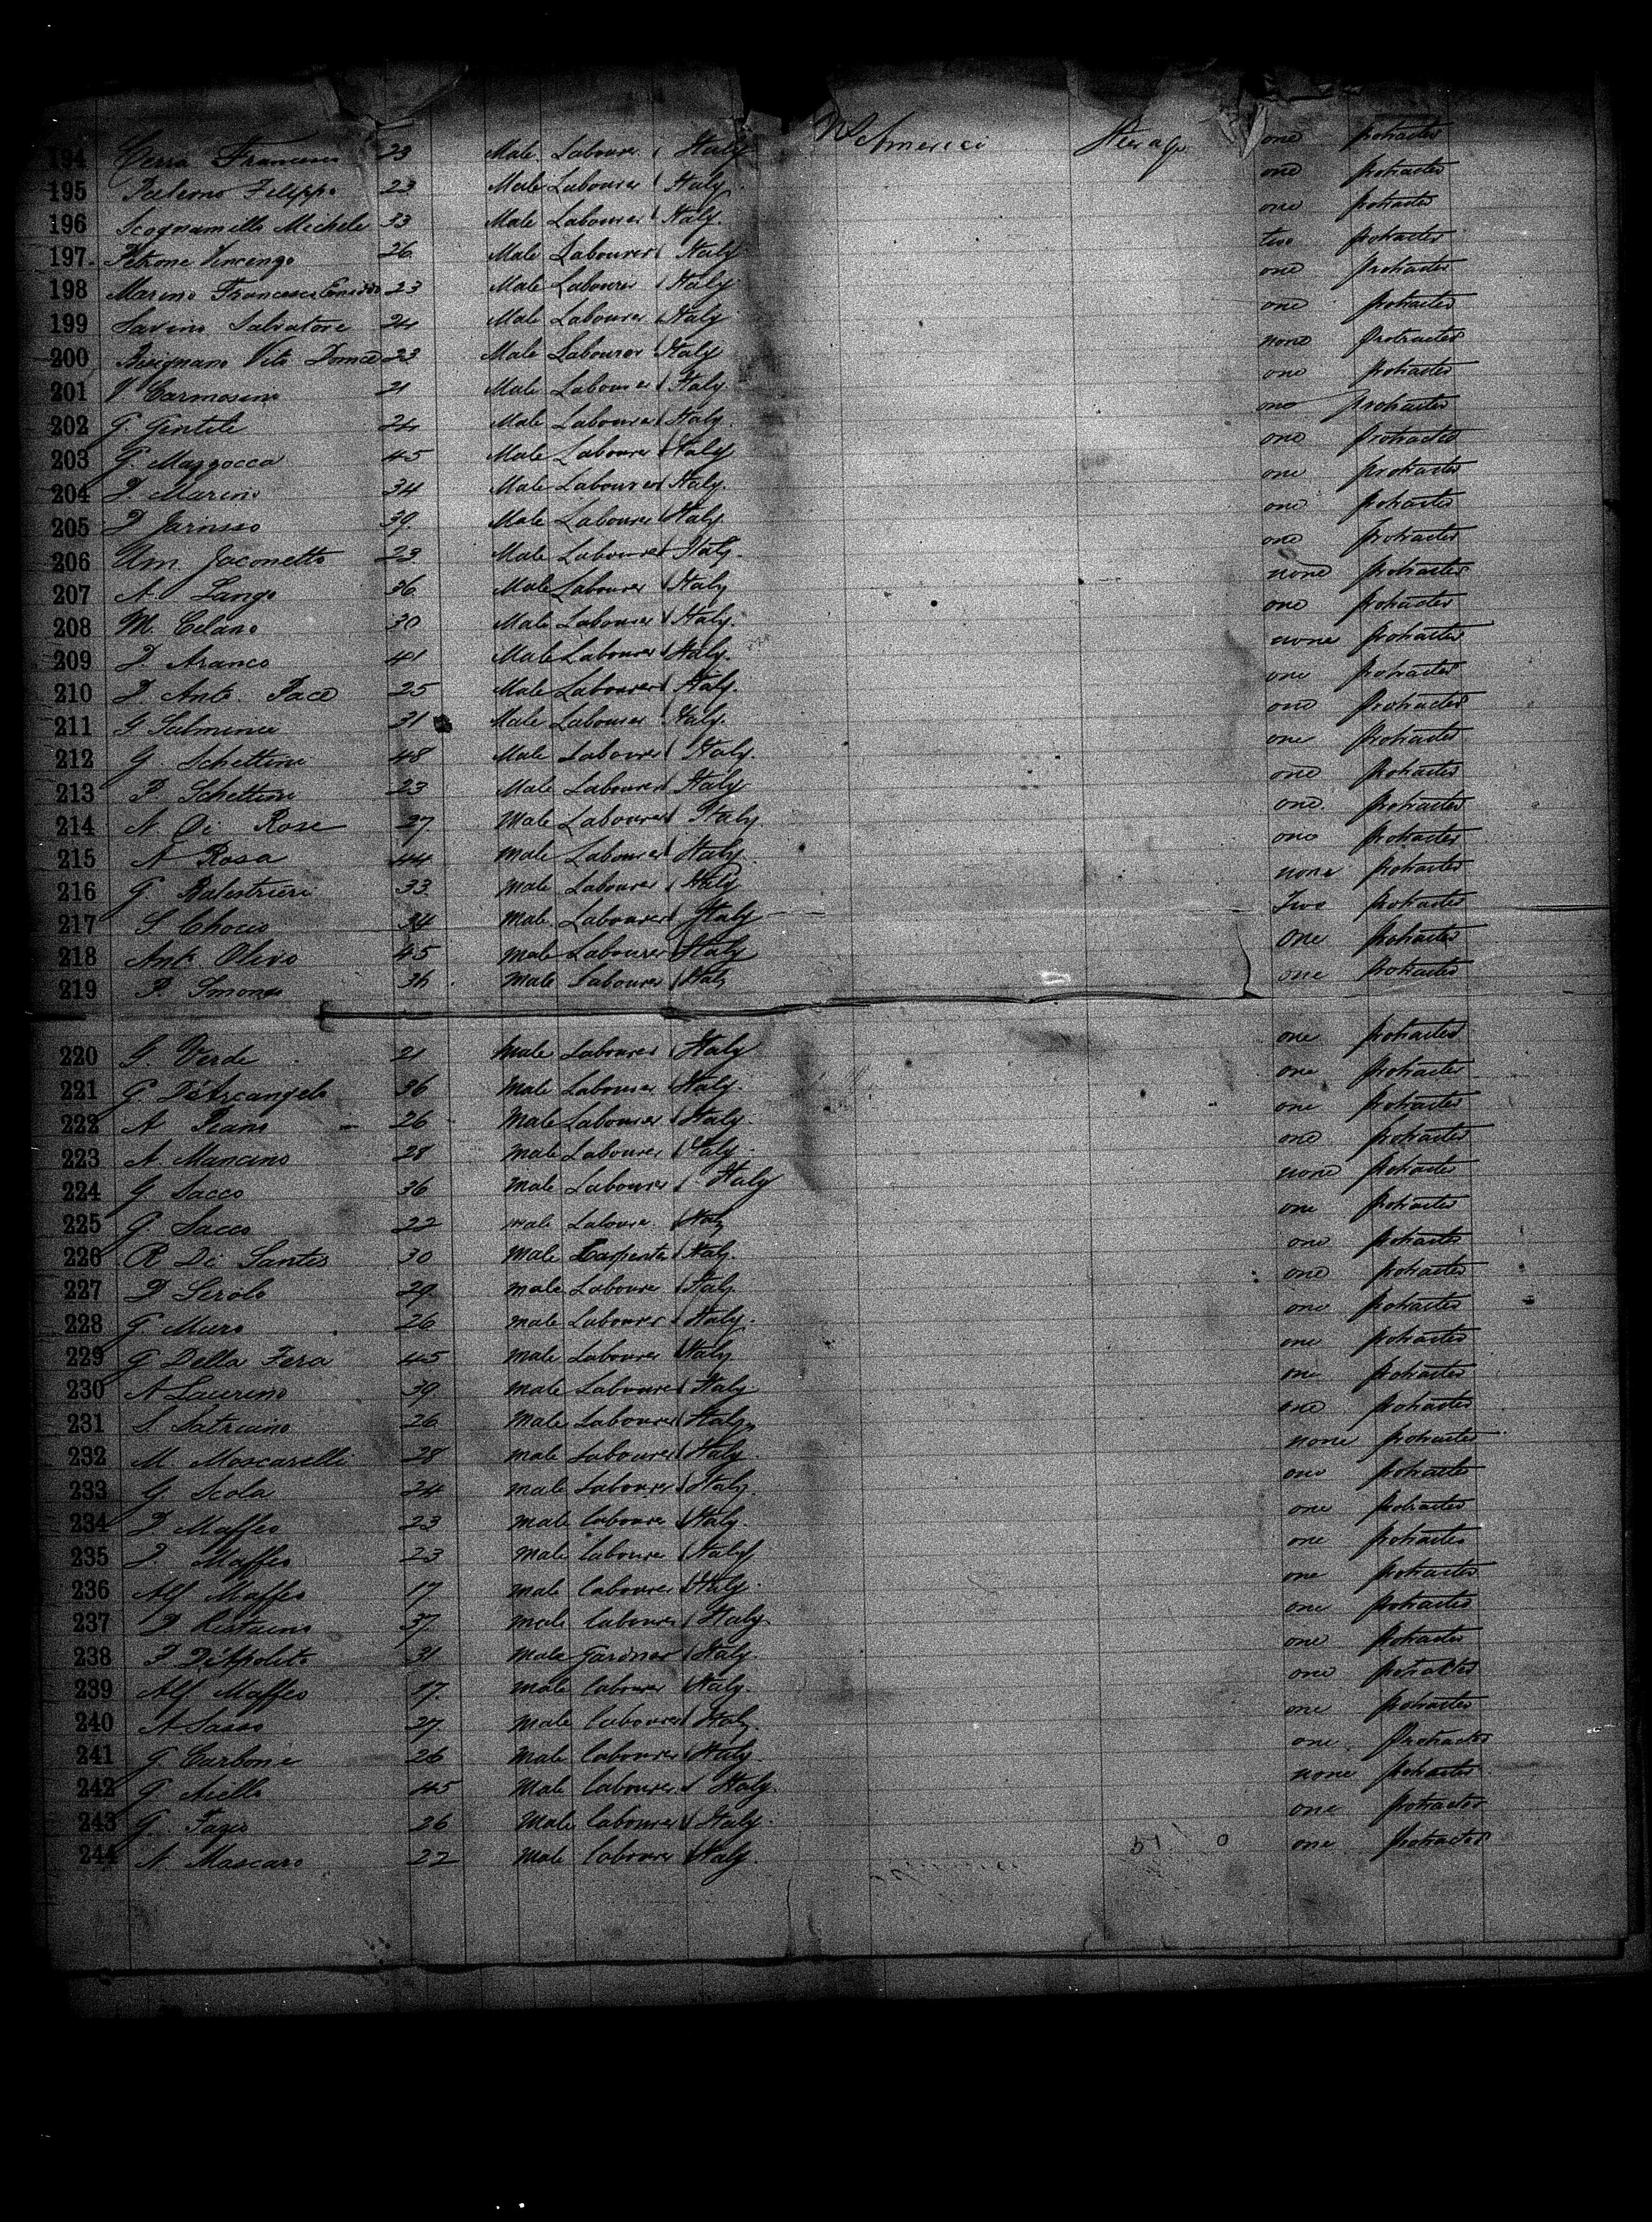 194 Cerra Francesco 23 Male Labourer Italy N America Steerage one protracted
195 Paterno Filippo 23 Male Labourer Italy one protracted
196 Scognamillo Michele 33 Male Labourer Italy one protracted
197 Petrone Vincenzo 26 Male Labourer Italy two protracted
198 Marino Francesco 23 Male Labourer Italy one protracted
199 Savino Salvatore 24 Male Labourer Italy one protracted
200 Bisignano Vito 23 Male Labourer Italy none Protracted
201 V. Carmosino 21 Male Labourer Italy one protracted
202 G. Gentile 24 Male Labourer Italy one protracted
203 G. Mazzocca 45 Male Labourer Italy one protracted
204 Marino 34 Male Labourer Italy one protracted
205 39 Male Labourer Italy one protracted
206 Jaconetta 23 Male Labourer Italy one protracted
207 A. Lango 36 Male Labourer Italy none protracted
208 M. Celano 30 Male Labourer Italy one protracted
209 Aranco 41 Male Labourer Italy none protracted
210 Ant. Pace 25 Male Labourer Italy one protracted
211 G 31 Male Labourer Italy one protracted
212 G. Schettini 48 Male Labourer Italy one protracted
213 P. Schettini 23 Male Labourer Italy one protracted
214 N. Di Rose 27 Male Labourer Italy one protracted
215 A Rosa 44 Male Labourer Italy one protracted
216 G. Balestrieri 33 Male Labourer Italy none protracted
217 S 34 Male Labourer Italy Two protracted
218 Ant. Olivo 45 Male Labourer Italy One protracted
219 P. 36 Male Labourer Italy one protracted
220 G. Verde 21 Male Labourer Italy one protracted
221 G. D'Arcangelo 36 Male Labourer Italy one protracted
222 A Piano 26 Male Labourer Italy one protracted
223 A. Mancino 28 Male Labourer Italy one protracted
224 G Sacco 36 Male Labourer Italy none protracted
225 G. Sacco 22 male Labourer Italy one protracted
226 R Di Santis 30 Male Carpenter Italy one protracted
227 Serolo 29 male Labourer Italy one protracted
228 G. Muro 26 male Labourer Italy one protracted
229 G Della Fera 45 male Labourer Italy one protracted
230 A Laurino 39 male Labourer Italy one protracted
231 S. 26 Male Labourer Italy one protracted
232 M Moscarelli 28 male Labourer Italy none protracted
233 G Scola 24 male Labourer Italy one protracted
234 Maffeo 23 male labourer Italy one protracted
235 Maffeo 23 male labourer Italy one protracted
236 Alf Maffeo 17 male labourer Italy one protracted
237 37 male labourer Italy one protracted
238 D'Appolito 31 Male Gardner Italy one protracted
239 Alf Maffeo 17 male labourer Italy one protracted
240 A Sasso 27 Male labourer Italy one protracted
241 G. Carbone 26 Male labourer Italy one Protracted
242 G Aiello 45 Male labourer Italy none protracted
243 G. Fazio 26 Male labourer Italy one protracted
244 N Mascaro 22 Male labourer Italy 51 0 one protracted